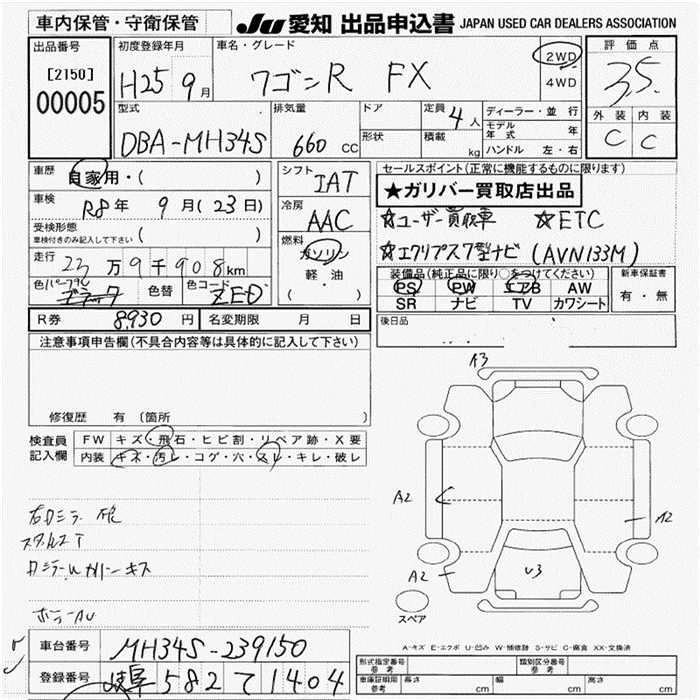 車内保管・守衛保管
JU 愛知 出品申込書 JAPAN USED CAR DEALERS ASSOCIATION
出品番号
[2150]
00005
初度登録年月
H25 9月
車名・グレード
ワゴンR FX
2WD
4WD
評価点
3.5
外装 内装
C C
型式
DBA-MH34S
排気量
660 cc
ドア
形状
定員 4人
積載 kg
ディーラー・並行
モデル年式 年
ハンドル 左・右
車歴
自家用・( )
車検
R8年 9月(23日)
受検形態
車検付きのみ記入して下さい ( )
走行
23万9千908km
色 パープル
ブラック
色替
色コード
ZED
シフト
IAT
冷房
AAC
燃料
ガソリン
軽油
( ・ )
セールスポイント(正常に機能するものに限ります)
★ガリバー買取店出品
☆ユーザー買取車 ☆ETC
☆エクリプス7型ナビ (AVN133M)
装備品(純正品に限り○をつけてください)
PS PW エアB AW
SR ナビ TV カワシート
新車保証書
有・無
後日品
R券 8,930円 名変期限 月 日
注意事項申告欄(不具合内容等は具体的に記入して下さい)
修復歴 有(箇所
検査員
記入欄
FW キズ・飛石・ヒビ割・リペア跡・X要
内装 キズ・汚レ・コゲ・穴・スレ・キレ・破レ
A3
A2
A2
A2
U3
スペア
A-キズ E-エクボ U-凹み W-補修跡 S-サビ C-腐食 XX-交換済
車台番号
MH34S-239150
登録番号
岐阜 582 て 1404
形式指定番号
参考
類別区分番号
参考
車庫証明用
参考
長さ cm 幅 cm 高さ cm